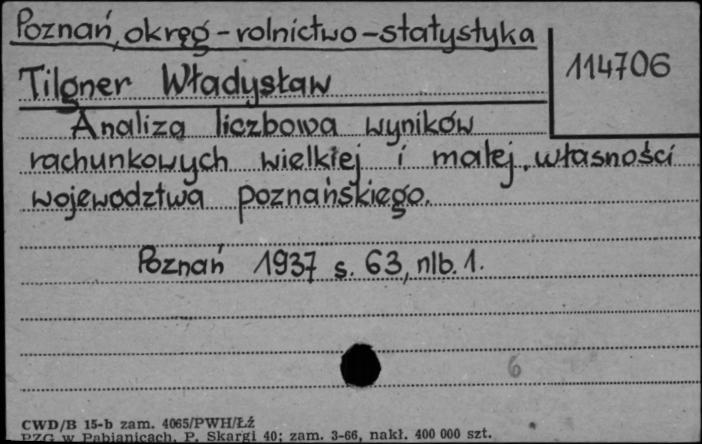 Poznań, okręg - rolnictwo - statystyka
114706
Tilgner Władysław
Analiza liczbowa wyników
rachunkowych wielkiej i małej własności
województwa poznańskiego.
Poznań 1937 s. 63, nlb. 1.
6
CWD/B 15-b zam. 4065/PWH/Łź
PZG w Pabianicach, P. Skargi 40; zam. 3-66, nakł. 400 000 szt.